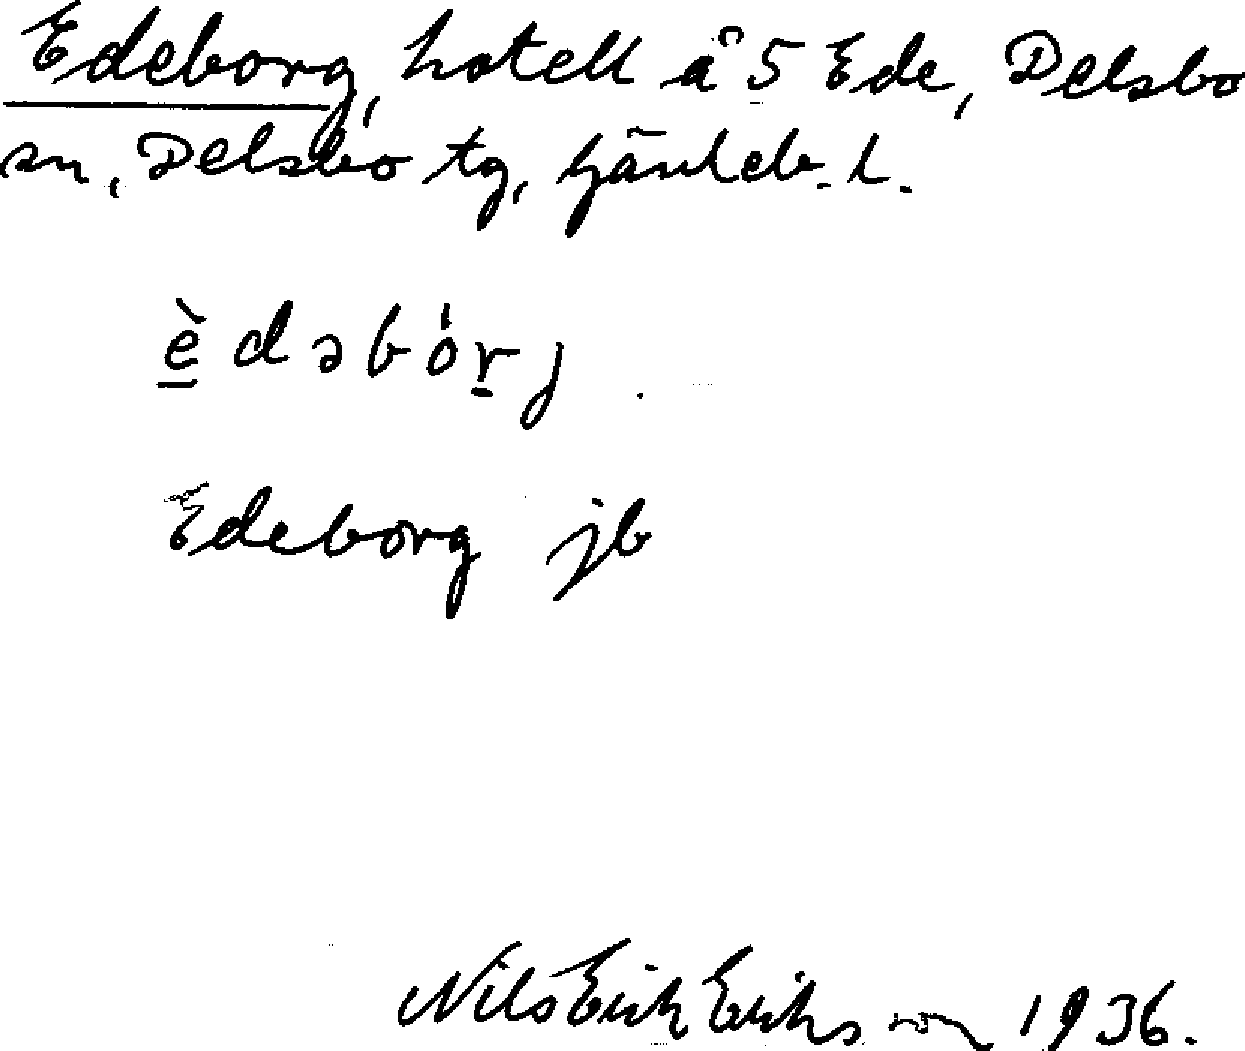 Edeborg, hotell å 5 Ede, Delsbo
sn, Delsbo tg, Gävleb. l.
è̱dəbóṟj
Edeborg jb
Nils Erik Eriksson 1936.